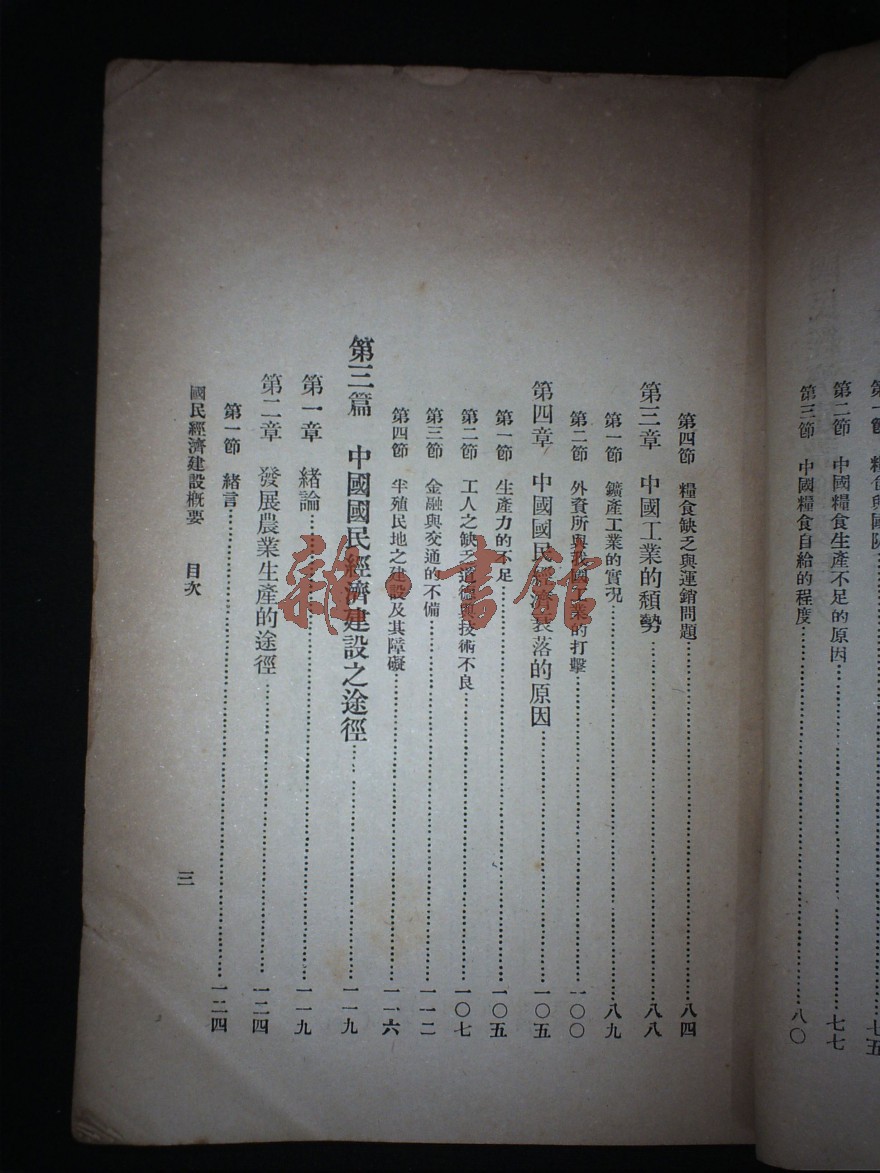 第一節 糧食與國防……七五
第二節 中國糧食生產不足的原因……七七
第三節 中國糧食自給的程度……八〇
第四節 糧食缺乏與運銷問題……八四
第三章 中國工業的頹勢……八八
第一節 鑛產工業的實况……八九
第二節 外資所與我國工業的打擊……一〇〇
第四章 中國國民經濟衰落的原因……一〇五
第一節 生產力的不足……一〇五
第二節 工人之缺乏道德與技術不良……一〇七
第三節 金融與交通的不備……一一二
第四節 半殖民地之建設及其障礙……一一六
第三篇 中國國民經濟建設之途徑……一一九
第一章 緒論……一一九
第二章 發展農業生產的途徑……一二四
第一節 緒言……一二四
國民經濟建設概要 目次 三
雜·書館